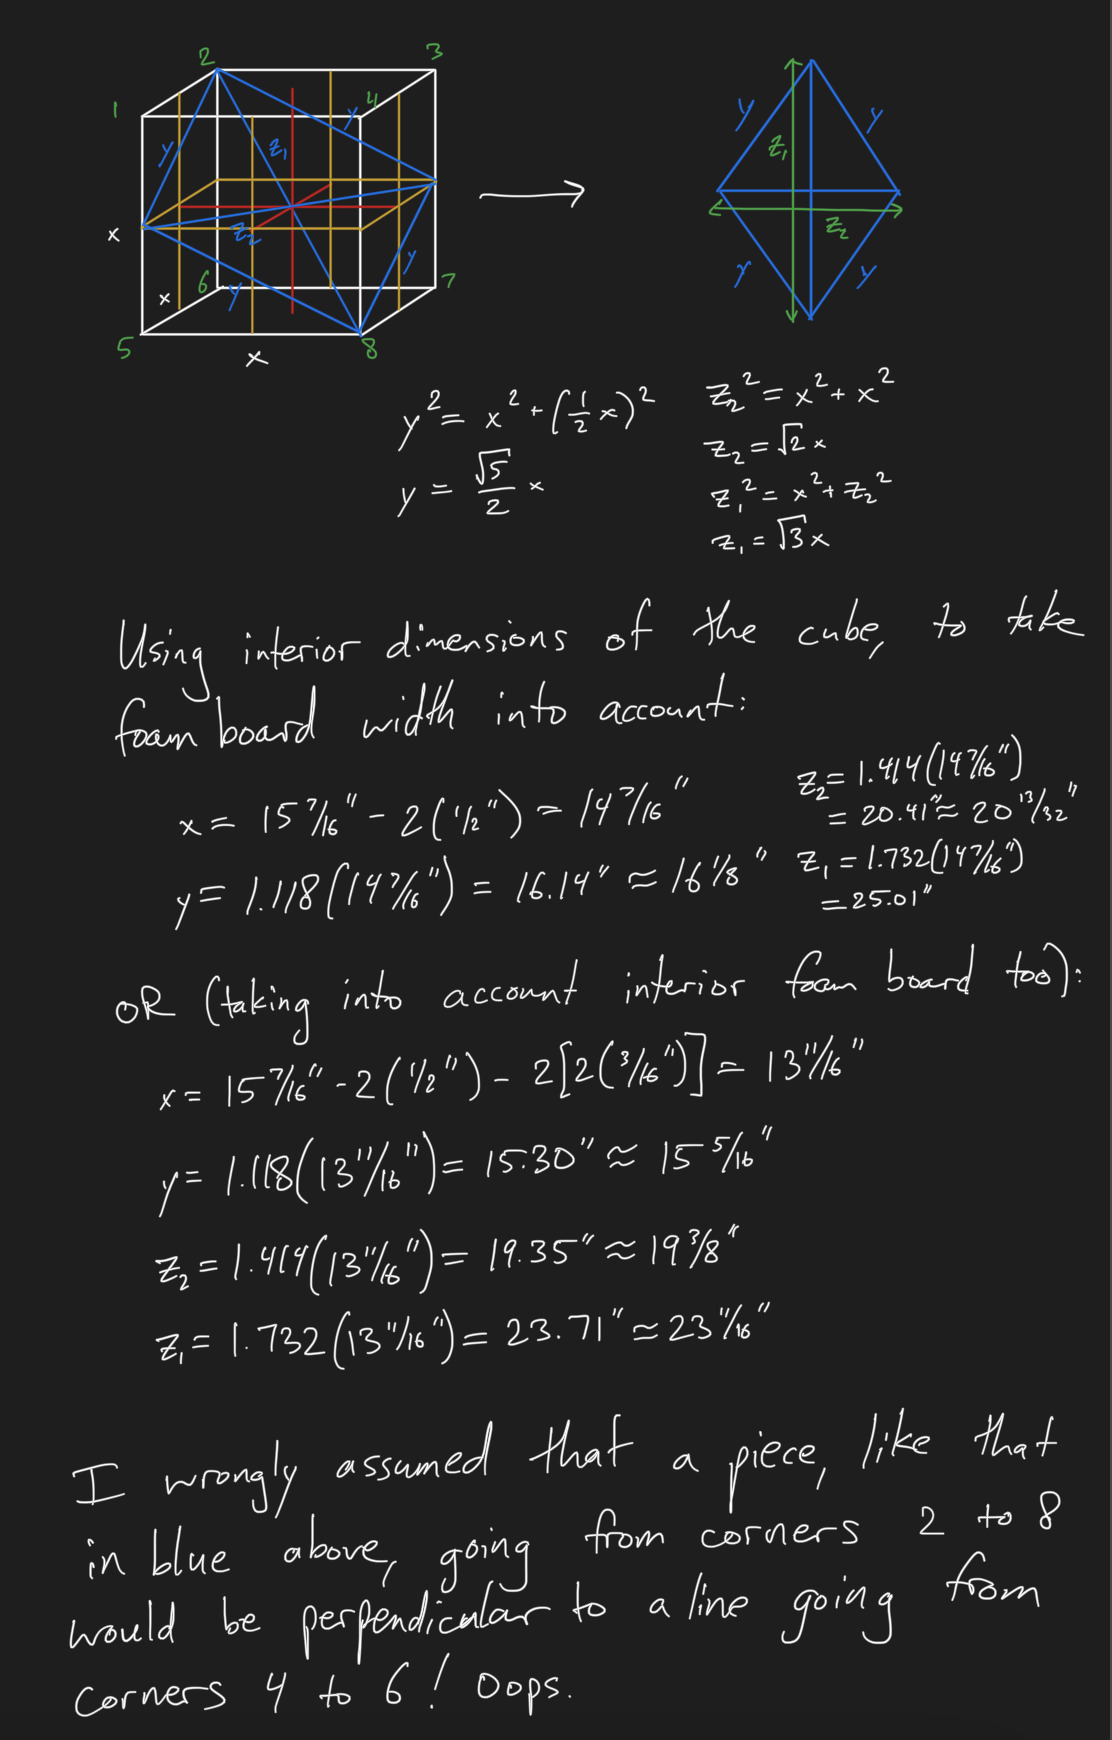 2
3
1
4
y
y
z₁
y
y
z₁
x
z₂
z₂
y
y
y
y
6
7
x
5
8
x
y² = x² + (½x)²
y = √5/2 x
z₂² = x² + x²
z₂ = √2 x
z₁² = x² + z₂²
z₁ = √3 x
Using interior dimensions of the cube, to take
foam board width into account:
x = 15 7/16" - 2(1/2") = 14 7/16"
y = 1.118(14 7/16") = 16.14" ≈ 16 1/8"
z₂ = 1.414(14 7/16")
= 20.41" ≈ 20 13/32"
z₁ = 1.732(14 7/16")
= 25.01"
OR (taking into account interior foam board too):
x = 15 7/16" - 2(1/2") - 2[2(3/16")] = 13 11/16"
y = 1.118(13 11/16") = 15.30" ≈ 15 5/16"
z₂ = 1.414(13 11/16") = 19.35" ≈ 19 3/8"
z₁ = 1.732(13 11/16") = 23.71" ≈ 23 11/16"
I wrongly assumed that a piece, like that
in blue above, going from corners 2 to 8
would be perpendicular to a line going from
corners 4 to 6! Oops.